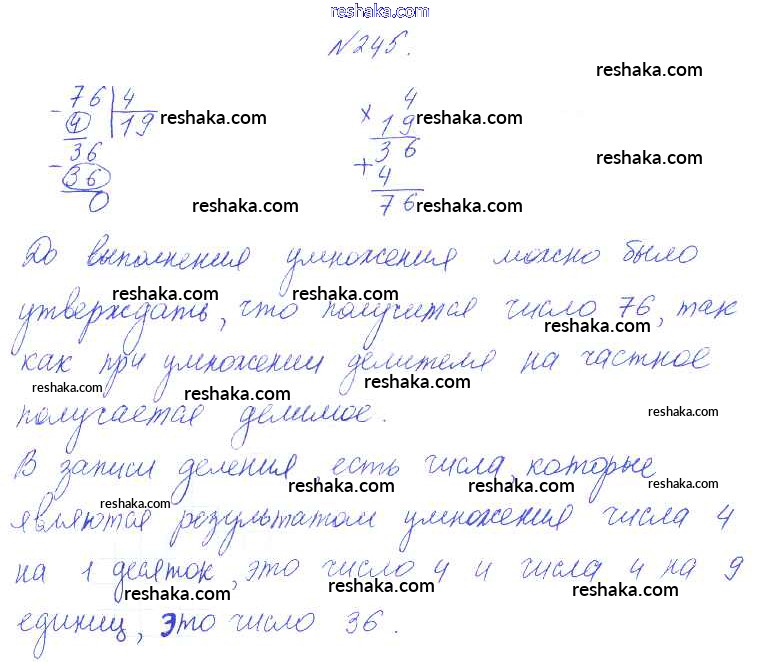 reshaka.com
№245.
reshaka.com
- 76 | 4
4 | 19 reshaka.com
36
- 36
0
reshaka.com
4
× 19 reshaka.com
36
+ 4
76 reshaka.com
reshaka.com
До выполнения умножения можно было
reshaka.com reshaka.com
утверждать, что получится число 76, так
reshaka.com
как при умножении делителя на частное
reshaka.com reshaka.com reshaka.com
получается делимое. reshaka.com
В записи деления есть числа, которые
reshaka.com reshaka.com reshaka.com
reshaka.com
являются результатом умножения числа 4
на 1 десяток, это число 4 и числа 4 на 9
reshaka.com reshaka.com
единиц, это число 36.
reshaka.com reshaka.com